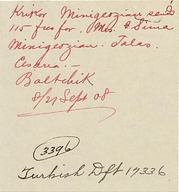 Krikor Minigeozian send
115 frcs for. Mrs. Sima
Minigeozian. Talas.
Cesarea. —
Baltchik
8/21 Sept 08
3396
Turkish Dft 17336